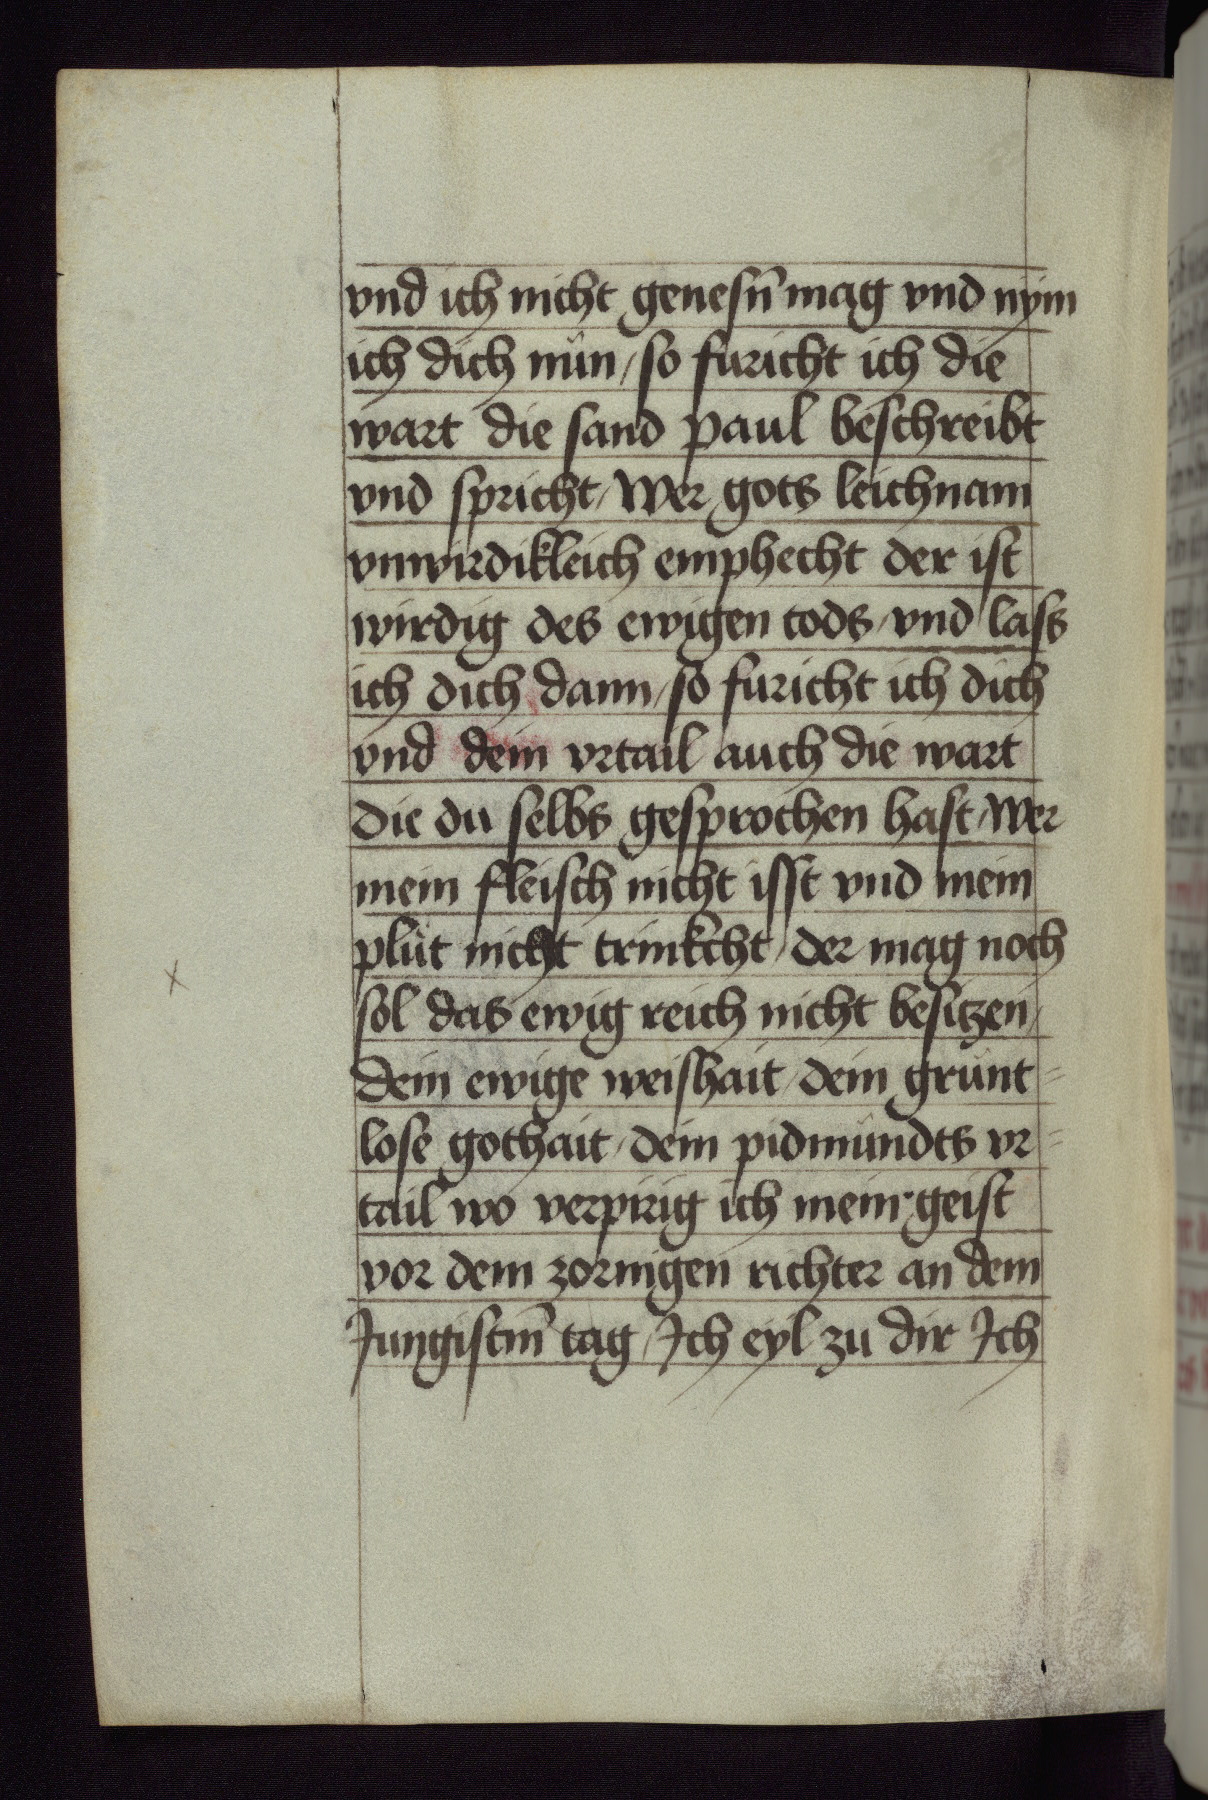 vnd ich nicht genesn̄ mag vnd nym
ich dich nün / so furicht ich die
wart die sand paul beschreibt
vnd spricht / Wer gots leichnam
vnwirdikleich emphecht der ist
wirdig des ewigen tods / vnd lass
ich dich dann / so furicht ich dich
vnd dein vrtail auch die wart
die du selbs gesprochen hast / Wer
mein fleisch nicht isst vnd mein
plüt nicht trinkcht / der mag noch
sol das ewig reich nicht besitzen /
Dein ewige weishait / dein grünt=
lose gothait / dein pidmündts vr=
tail wo verpirig ich mein geist
vor dem zornigen richter an dem
Jungistn̄ tag / Ich eyl zu dir Ich